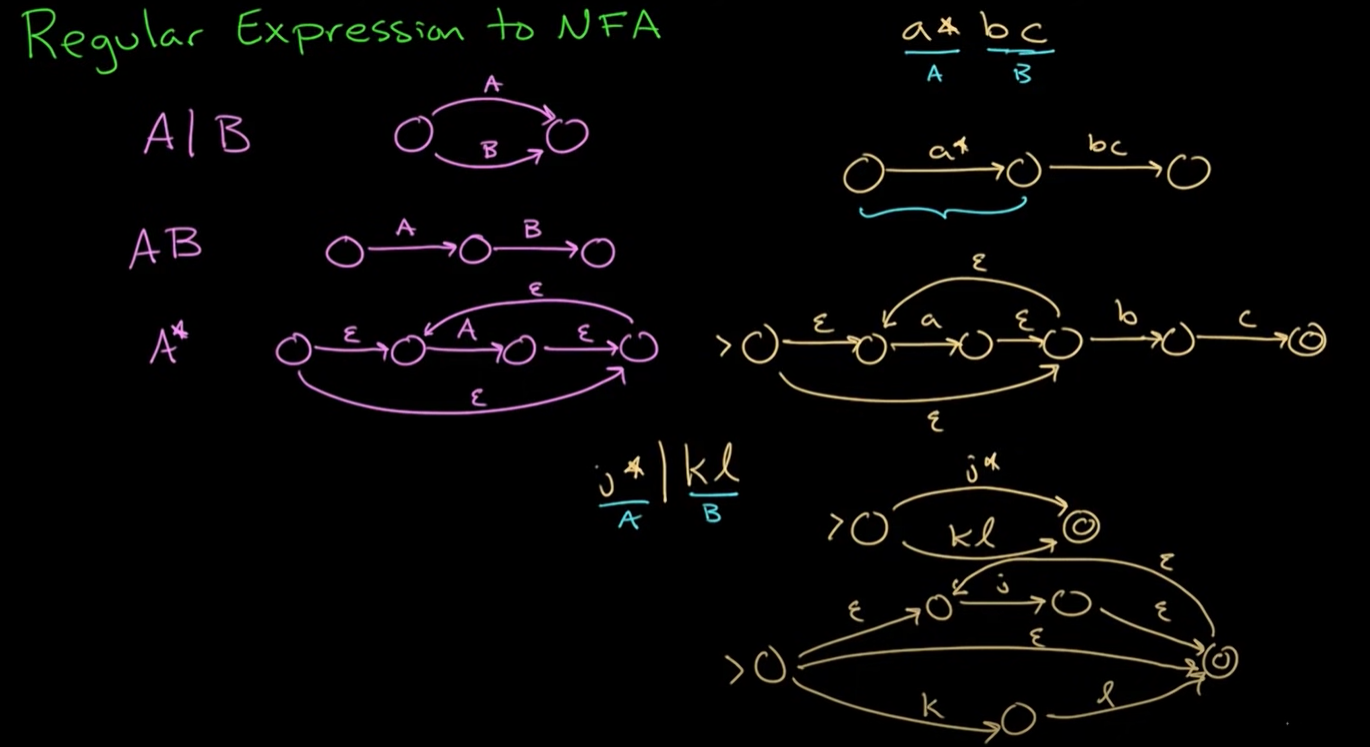 Regular Expression to NFA
a* bc
A B
A
A|B
B
a* bc
AB
A B
ε
A*
ε A ε
ε
ε
ε a ε b c
ε
j*|kl
A B
j*
> kl
ε
ε j ε
ε
>
k l